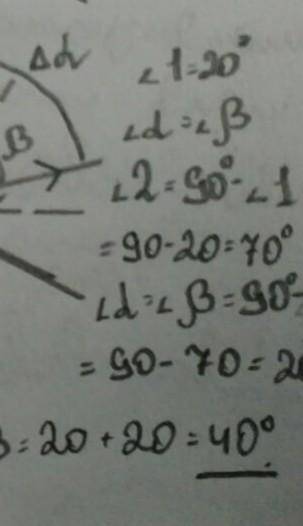 Δd
∠1=20°
β
∠d=∠β
∠2=90°-∠1
=90-20=70°
∠d=∠β=90°-
=90-70=20
=20+20=40°